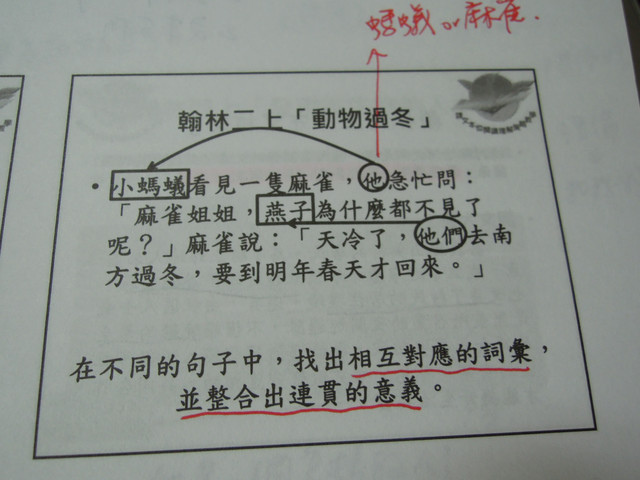 螞蟻 or 麻雀.
翰林二上「動物過冬」
• 小螞蟻看見一隻麻雀，他急忙問：
「麻雀姐姐，燕子為什麼都不見了
呢？」麻雀說：「天冷了，他們去南
方過冬，要到明年春天才回來。」
在不同的句子中，找出相互對應的詞彙，
並整合出連貫的意義。